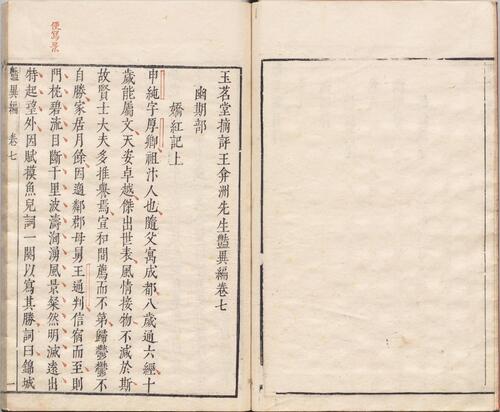 便寫景
玉茗堂摘評王弇洲先生豔異編卷七
幽期部
嬌紅記上
申純字厚卿祖汴人也隨父寓成都八歲通六經十
歲能屬文天姿卓越傑出世表風情接物不減於斯
故賢士大夫多推譽焉宣和間薦而不第歸鬱鬱不
自勝家居月餘因適鄰郡母舅王通判信宿而至則
門枕碧流目斷千里波濤洶湧風景粲然明滅遠出
特起望外因賦摸魚兒詞一闋以寫其勝詞曰錦城
豔異編 卷七 一